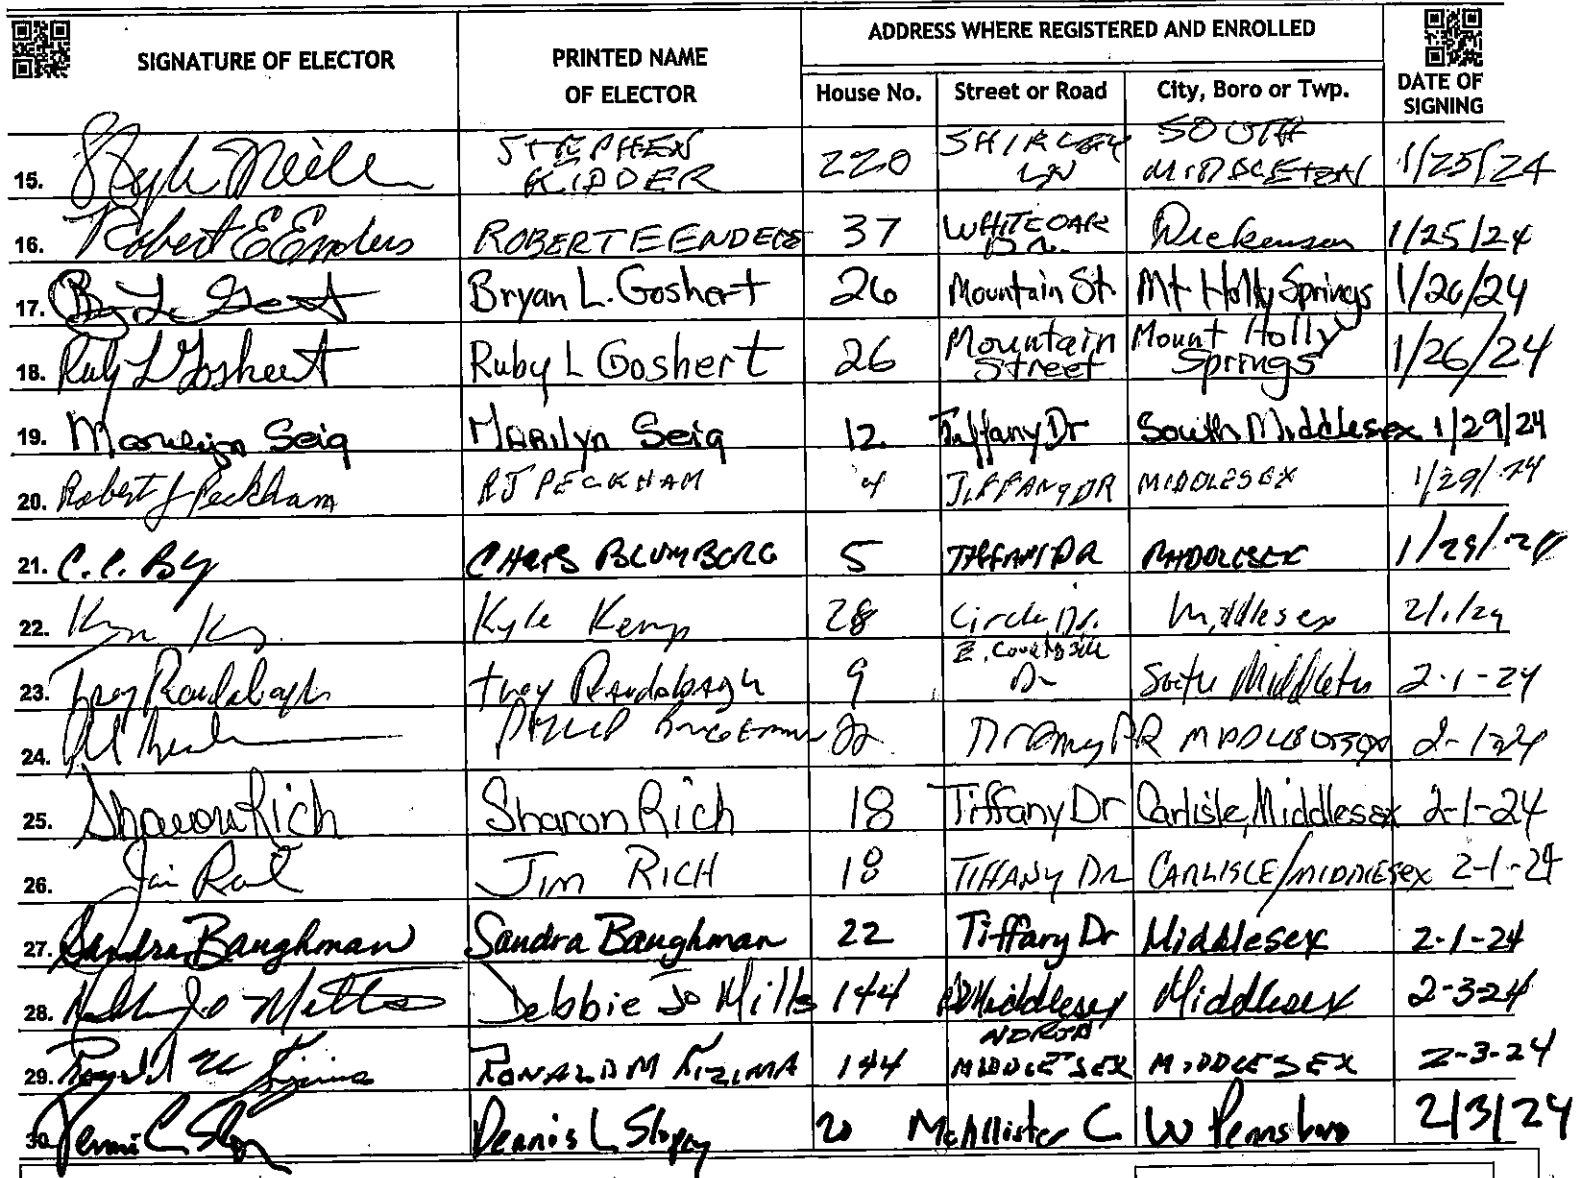 SIGNATURE OF ELECTOR PRINTED NAME OF ELECTOR ADDRESS WHERE REGISTERED AND ENROLLED
House No. Street or Road City, Boro or Twp. DATE OF SIGNING
15. STEPHEN KIDDER 220 SHIRLEY LN SOUTH MIDDLETON 1/25/24
16. Robert E Enders ROBERT E ENDERS 37 WHITE OAK DR. Dickenson 1/25/24
17. Bryan L. Goshert 26 Mountain St. Mt Holly Springs 1/26/24
18. Ruby L Goshert Ruby L Goshert 26 Mountain Street Mount Holly Springs 1/26/24
19. Marilyn Seig MARilyn Seig 12 Tiffany Dr South Middlesex 1/29/24
20. Robert J Peckham RJ PECKHAM 4 TIFFANY DR MIDDLESEX 1/29/24
21. CHRIS BLUMBERG 5 TIFFANY DR MIDDLESEX 1/29/24
22. Kyle Kemp 28 Circle Dr. Middlesex 2/1/24
23. Troy Raudabaugh Troy Raudabaugh 9 E. Countryside Dr South Middleton 2-1-24
24. 22 Tiffany DR 2-1-24
25. Sharon Rich Sharon Rich 18 Tiffany Dr Carlisle, Middlesex 2-1-24
26. Jim RICH 18 TIFFANY DR CARLISLE/MIDDLESEX 2-1-24
27. Sandra Baughman Sandra Baughman 22 Tiffany Dr Middlesex 2-1-24
28. Debbie Jo Mills 144 Middlesex Middlesex 2-3-24
29. RONALD M 144 NORTH MIDDLESEX MIDDLESEX 2-3-24
30. Dennis L 20 McAllister C W Pennsboro 2/3/24